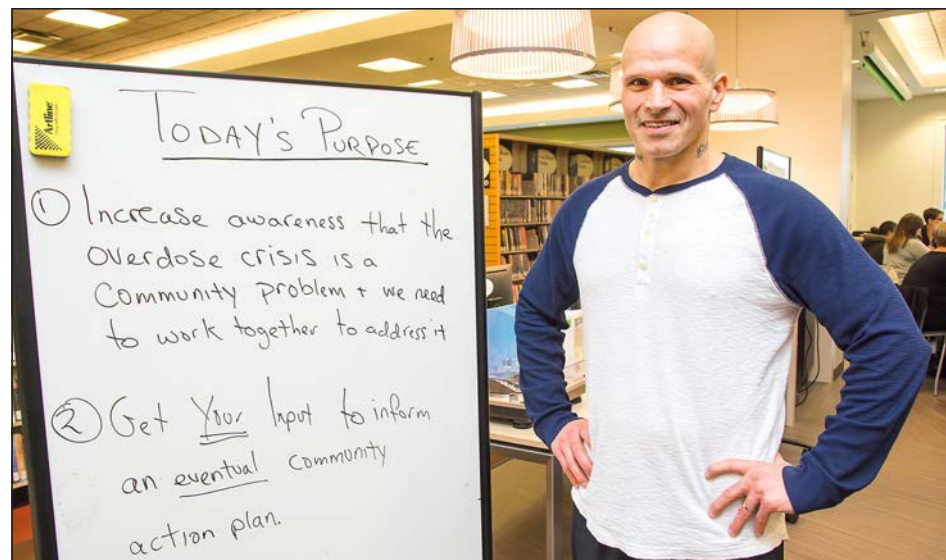 Artline
TODAY'S PURPOSE
① Increase awareness that the
overdose crisis is a
community problem + we need
to work together to address it
② Get Your Input to inform
an eventual community
action plan.